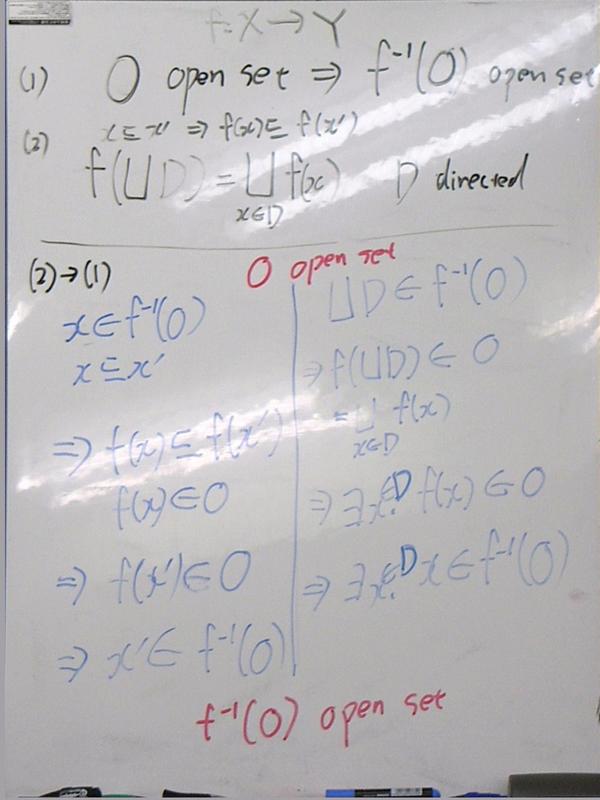 f: X → Y
(1) O open set ⇒ f⁻¹(O) open set
x ⊑ x' ⇒ f(x) ⊑ f(x')
(2) f(⊔D) = ⊔ f(x) D directed
x∈D
(2)→(1) O open set
x ∈ f⁻¹(O)
x ⊑ x'
⇒ f(x) ⊑ f(x')
f(x) ∈ O
⇒ f(x') ∈ O
⇒ x' ∈ f⁻¹(O)
⊔D ∈ f⁻¹(O)
⇒ f(⊔D) ∈ O
= ⊔ f(x)
x∈D
⇒ ∃x∈D. f(x) ∈ O
⇒ ∃x∈D. x ∈ f⁻¹(O)
f⁻¹(O) open set